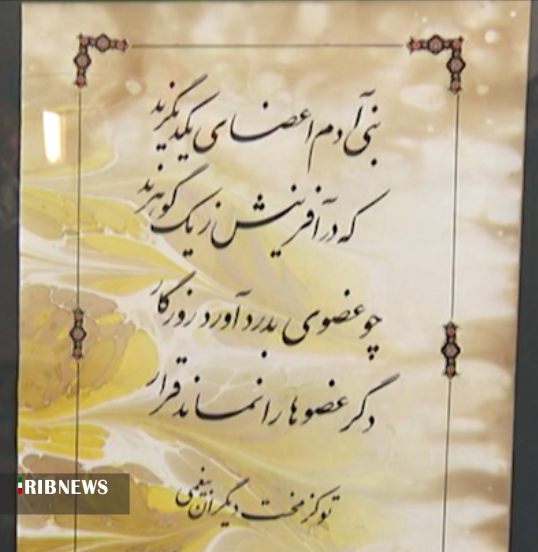 بنی آدم اعضای یکدیگرند
که در آفرینش ز یک گوهرند
چو عضوی بدرد آورد روزگار
دگر عضوها را نماند قرار
تو کز محنت دیگران بیغمی
RIBNEWS